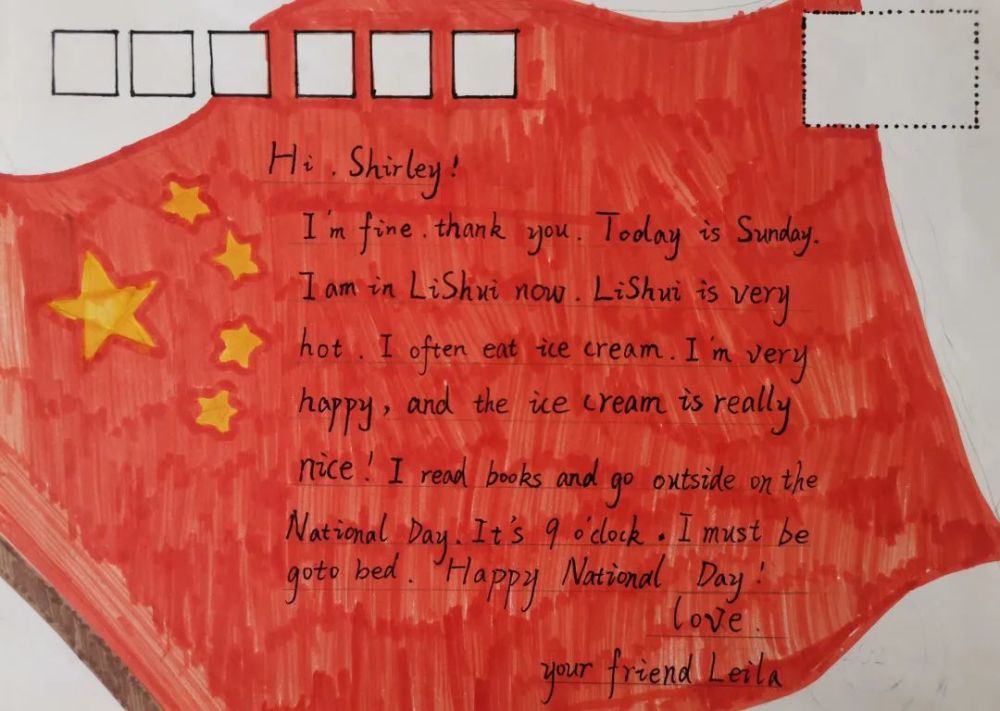 Hi. Shirley!
I'm fine. thank you. Today is Sunday.
I am in LiShui now. LiShui is very
hot. I often eat ice cream. I'm very
happy, and the ice cream is really
nice! I read books and go outside on the
National Day. It's 9 o'clock. I must be
goto bed. Happy National Day!
love.
your friend Leila